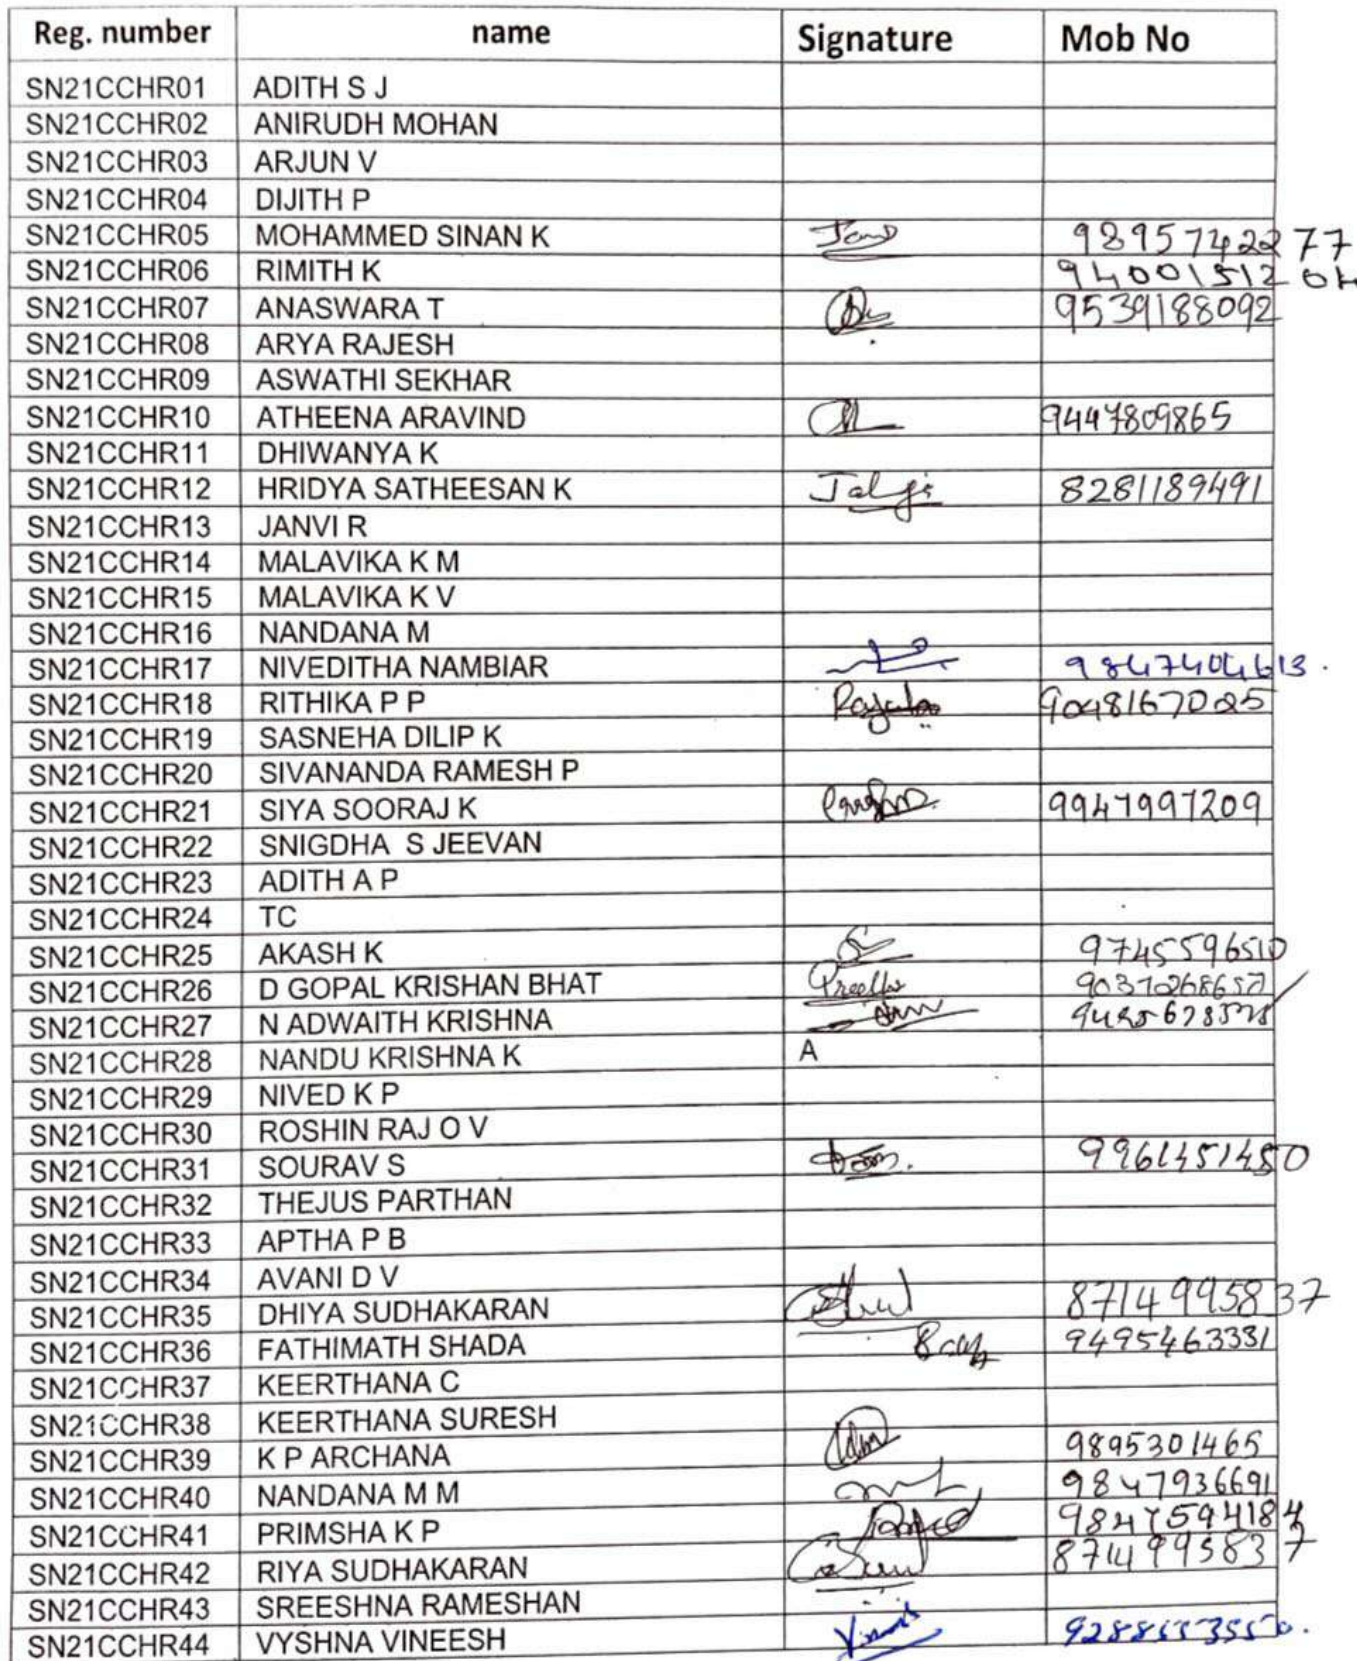 Reg. number name Signature Mob No
SN21CCHR01 ADITH S J
SN21CCHR02 ANIRUDH MOHAN
SN21CCHR03 ARJUN V
SN21CCHR04 DIJITH P
SN21CCHR05 MOHAMMED SINAN K 9895742277
SN21CCHR06 RIMITH K 9400151204
SN21CCHR07 ANASWARA T 9539188092
SN21CCHR08 ARYA RAJESH
SN21CCHR09 ASWATHI SEKHAR
SN21CCHR10 ATHEENA ARAVIND 9447809865
SN21CCHR11 DHIWANYA K
SN21CCHR12 HRIDYA SATHEESAN K 8281189491
SN21CCHR13 JANVI R
SN21CCHR14 MALAVIKA K M
SN21CCHR15 MALAVIKA K V
SN21CCHR16 NANDANA M
SN21CCHR17 NIVEDITHA NAMBIAR 9847404613.
SN21CCHR18 RITHIKA P P 9048167025
SN21CCHR19 SASNEHA DILIP K
SN21CCHR20 SIVANANDA RAMESH P
SN21CCHR21 SIYA SOORAJ K 9947997209
SN21CCHR22 SNIGDHA S JEEVAN
SN21CCHR23 ADITH A P
SN21CCHR24 TC
SN21CCHR25 AKASH K 9745596510
SN21CCHR26 D GOPAL KRISHAN BHAT
SN21CCHR27 N ADWAITH KRISHNA
SN21CCHR28 NANDU KRISHNA K A
SN21CCHR29 NIVED K P
SN21CCHR30 ROSHIN RAJ O V
SN21CCHR31 SOURAV S 9961451450
SN21CCHR32 THEJUS PARTHAN
SN21CCHR33 APTHA P B
SN21CCHR34 AVANI D V
SN21CCHR35 DHIYA SUDHAKARAN 8714995837
SN21CCHR36 FATHIMATH SHADA 9495463331
SN21CCHR37 KEERTHANA C
SN21CCHR38 KEERTHANA SURESH
SN21CCHR39 K P ARCHANA 9895301465
SN21CCHR40 NANDANA M M 9847936691
SN21CCHR41 PRIMSHA K P 9847594184
SN21CCHR42 RIYA SUDHAKARAN 8714995837
SN21CCHR43 SREESHNA RAMESHAN
SN21CCHR44 VYSHNA VINEESH